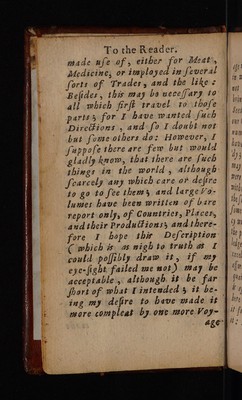 To the Reader.
made uſe of, either for Meat,
Medicine, or imployed in ſeveral
ſorts of Trades, and the like:
Beſides, this may be neceſſary to
all which firſt travel to thoſe
parts; for I have wanted ſuch
Directions, and ſo I doubt not
but ſome others do: However, I
ſuppoſe there are few but would
gladly know, that there are ſuch
things in the world, although
ſcarcely any which care or deſire
to go to ſee them; and large Vo-
lumes have been written of bare
report only, of Countries, Places,
and their Productions; and there-
fore I hope this Deſcription
(which is as nigh to truth as I
could poſſibly draw it, if my
eye-ſight failed me not) may be
acceptable, although it be far
ſhort of what I intended; it be-
ing my deſire to have made it
more compleat by one more Voy-
age